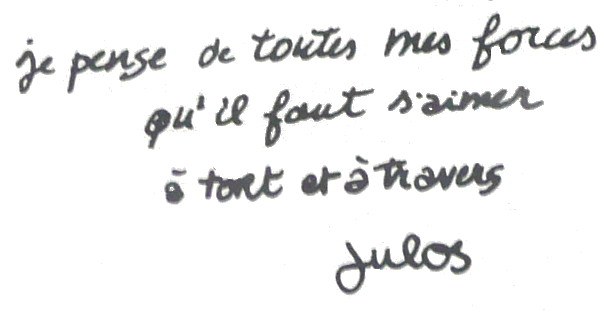 je pense de toutes mes forces
qu'il faut s'aimer
à tort et à travers
Julos